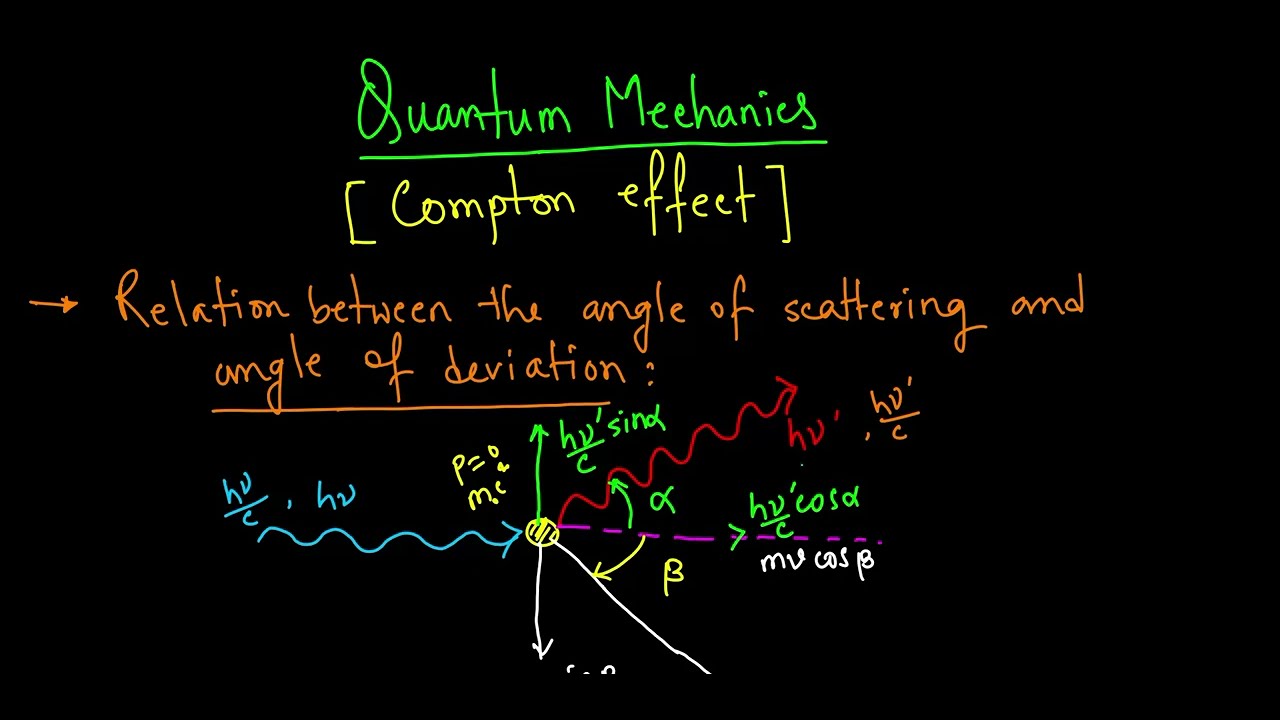 Quantum Mechanics
[Compton effect]
→ Relation between the angle of scattering and
angle of deviation:
hν'/c sinα
hν' , hν'/c
p=0
hν/c , hν
α
hν'/c cosα
mv cosβ
β